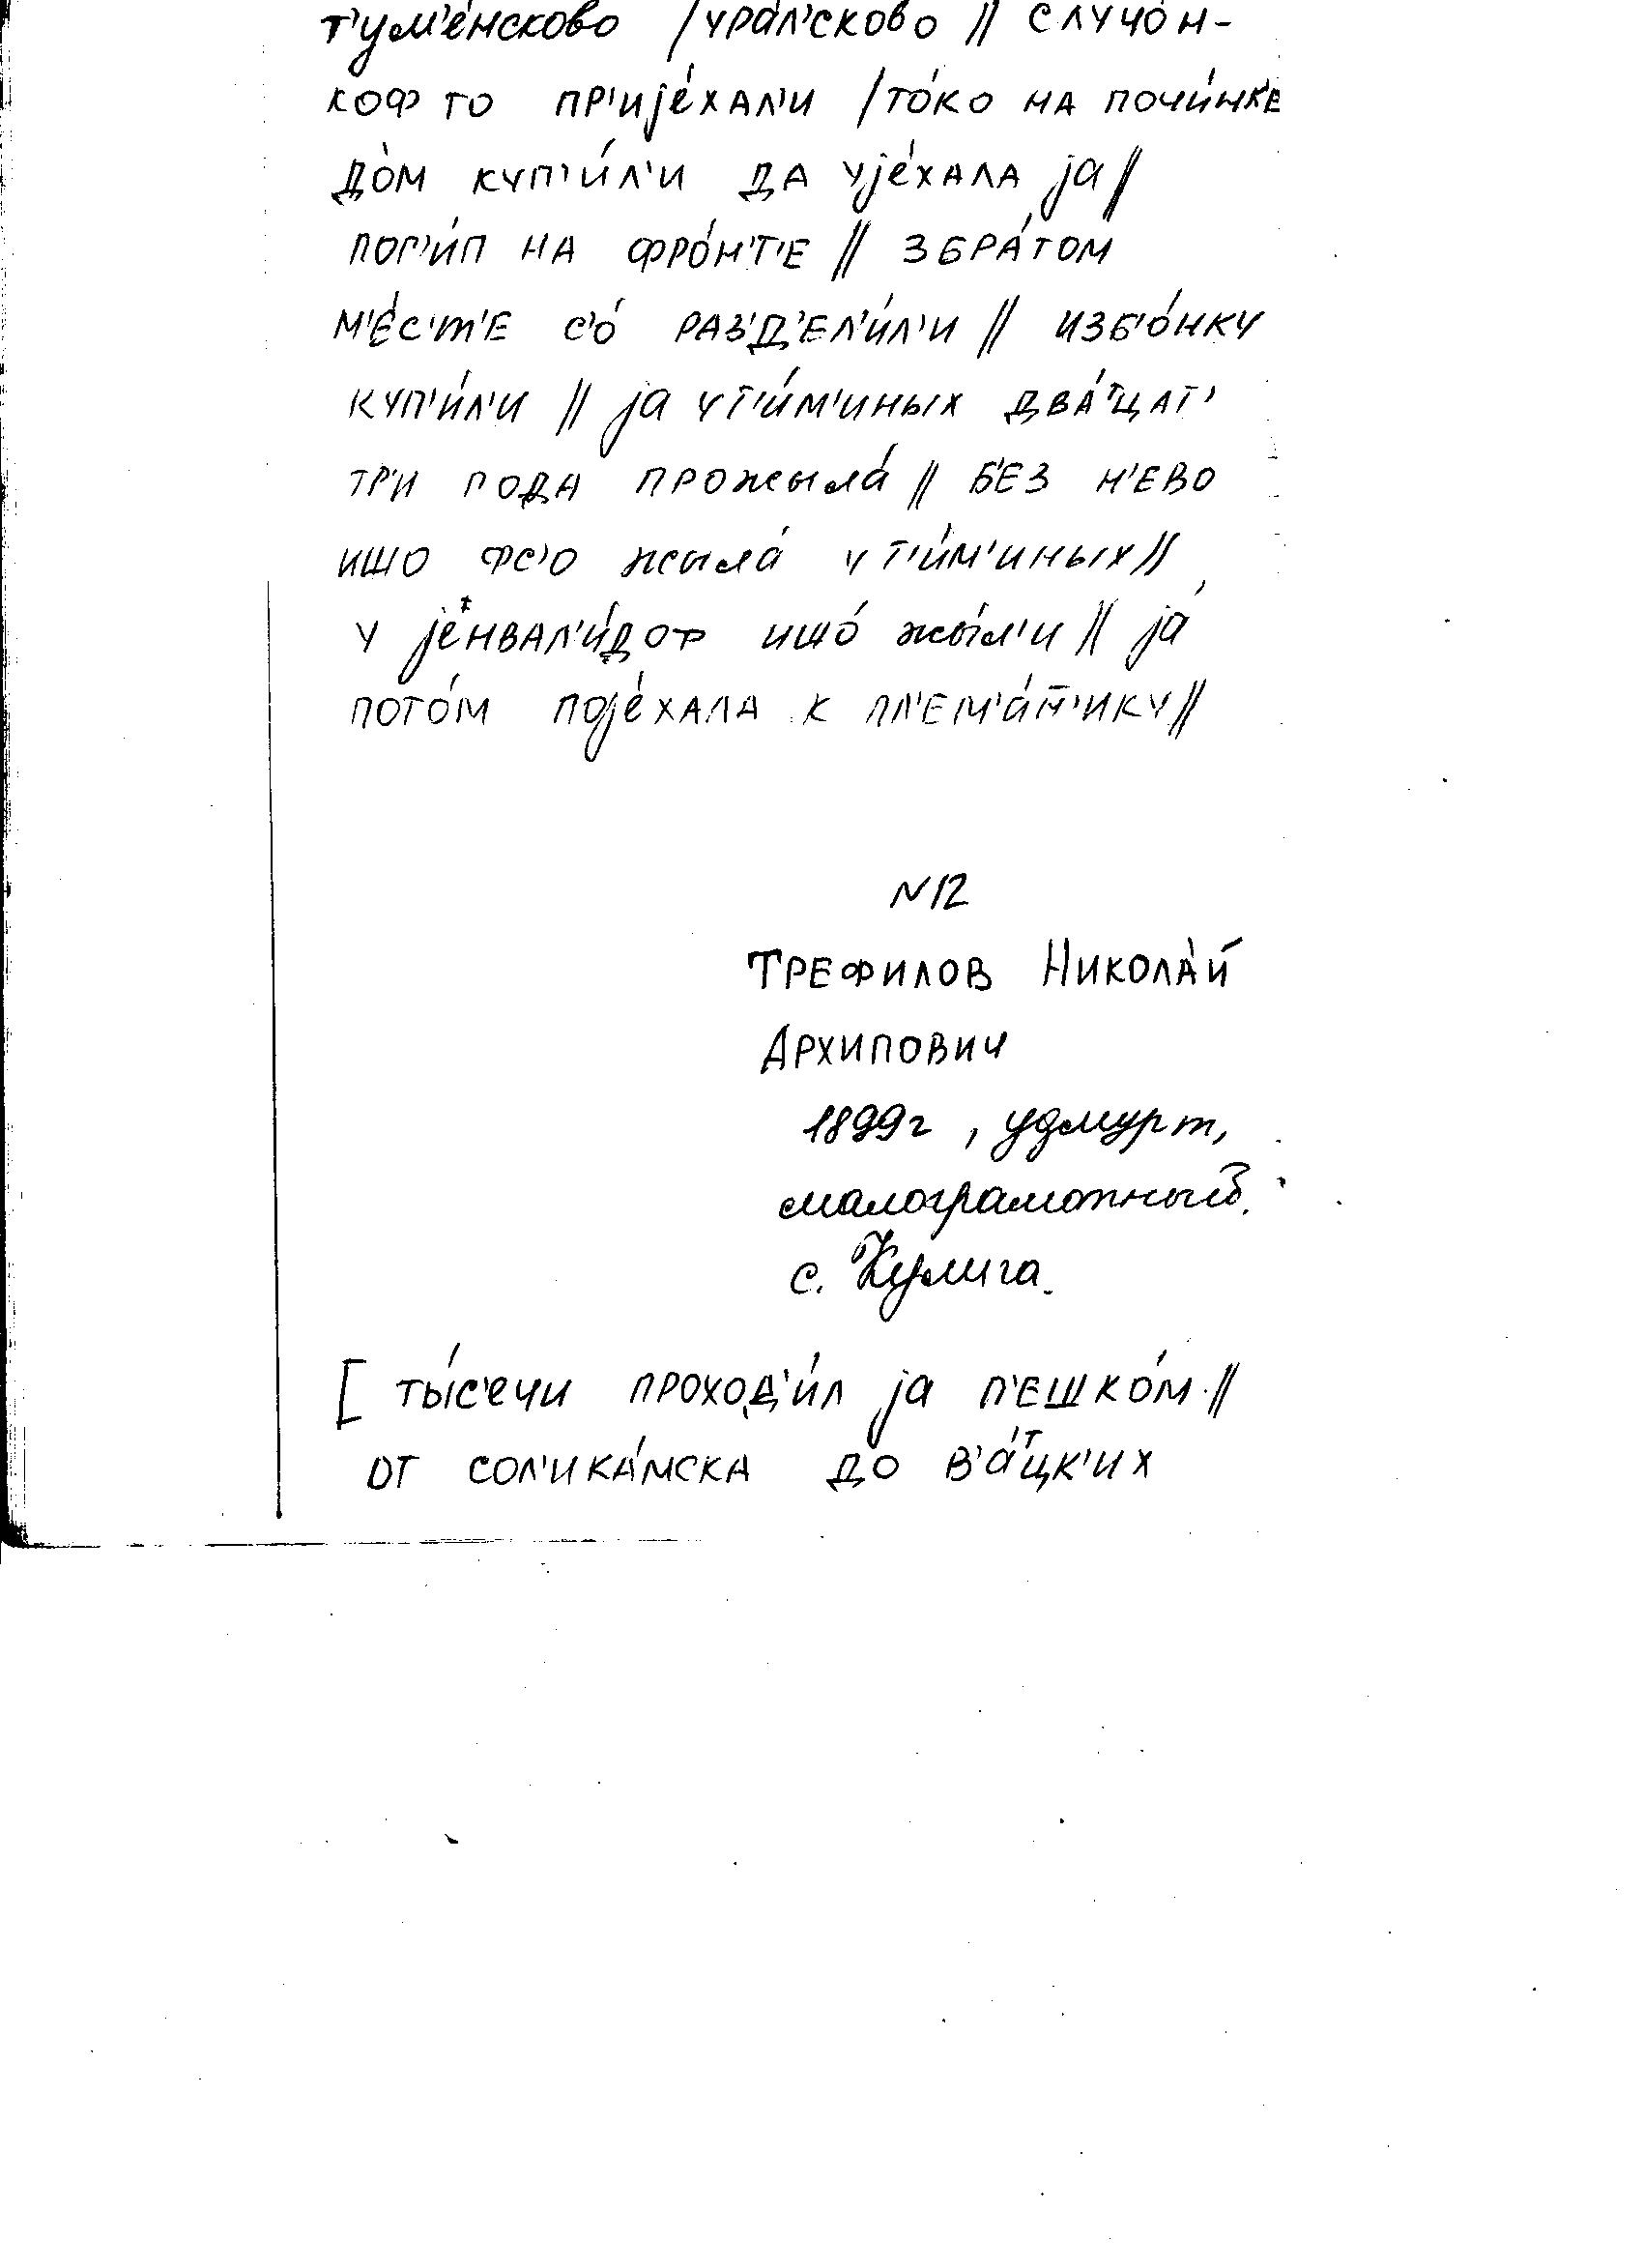 т'ум'е́нсково / ура́л'сково // случо́н-
коф то пр'ијéхал'и / то́ко на почи́нк'е
до́м куп'и́л'и да ујéхала ја //
пог'и́п на фро́н'т'е // збра́том
м'е́с'т'е с'о́ раз'д'ел'и́л'и // изб'о́нку
куп'и́л'и // ја ут'и́м'иных два́ᵀцат'
тр'и года прожыла́ // б'ез н'ево
ишо фс'о жыла́ ут'и́м'иных //
у јенвал'и́доф ишо́ жы́л'и // ја́
пото́м појéхала к пл'ем'а́н̄'ику //
N12
Трефилов Никола́й
Архипович
1899г, удмурт,
малограмотный.
с. Кулига.
[ ты́с'ечи проход'и́л ја п'ешко́м //
от сол'ика́мска до в'а́ᵀцк'их